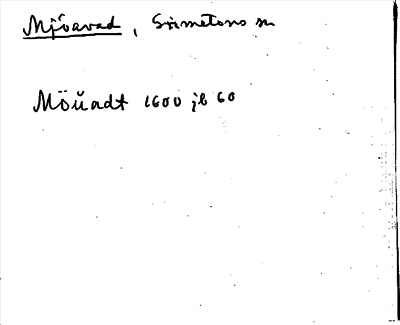 Mjövavad, Sörmetons sn
Möuadt 1600 jb 60